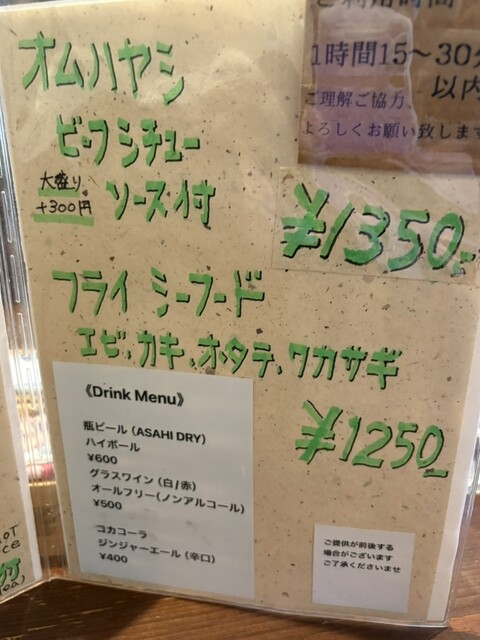 ご利用時間
1時間15～30分
以内
ご理解ご協力、
よろしくお願い致します
オムハヤシ
ビーフシチュー
ソース付
大盛り
+300円
¥1350.-
フライ シーフード
エビ、カキ、ホタテ、ワカサギ
¥1250
《Drink Menu》
瓶ビール（ASAHI DRY）
ハイボール
¥600
グラスワイン（白/赤）
オールフリー(ノンアルコール）
¥500
コカコーラ
ジンジャーエール（辛口）
¥400
ご提供が前後する
場合がございます
ご了承くださいませ